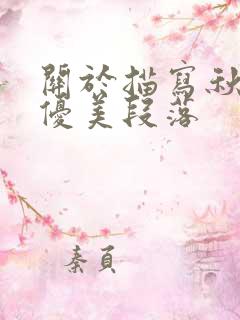 關於描寫秋
優美段落
秦員